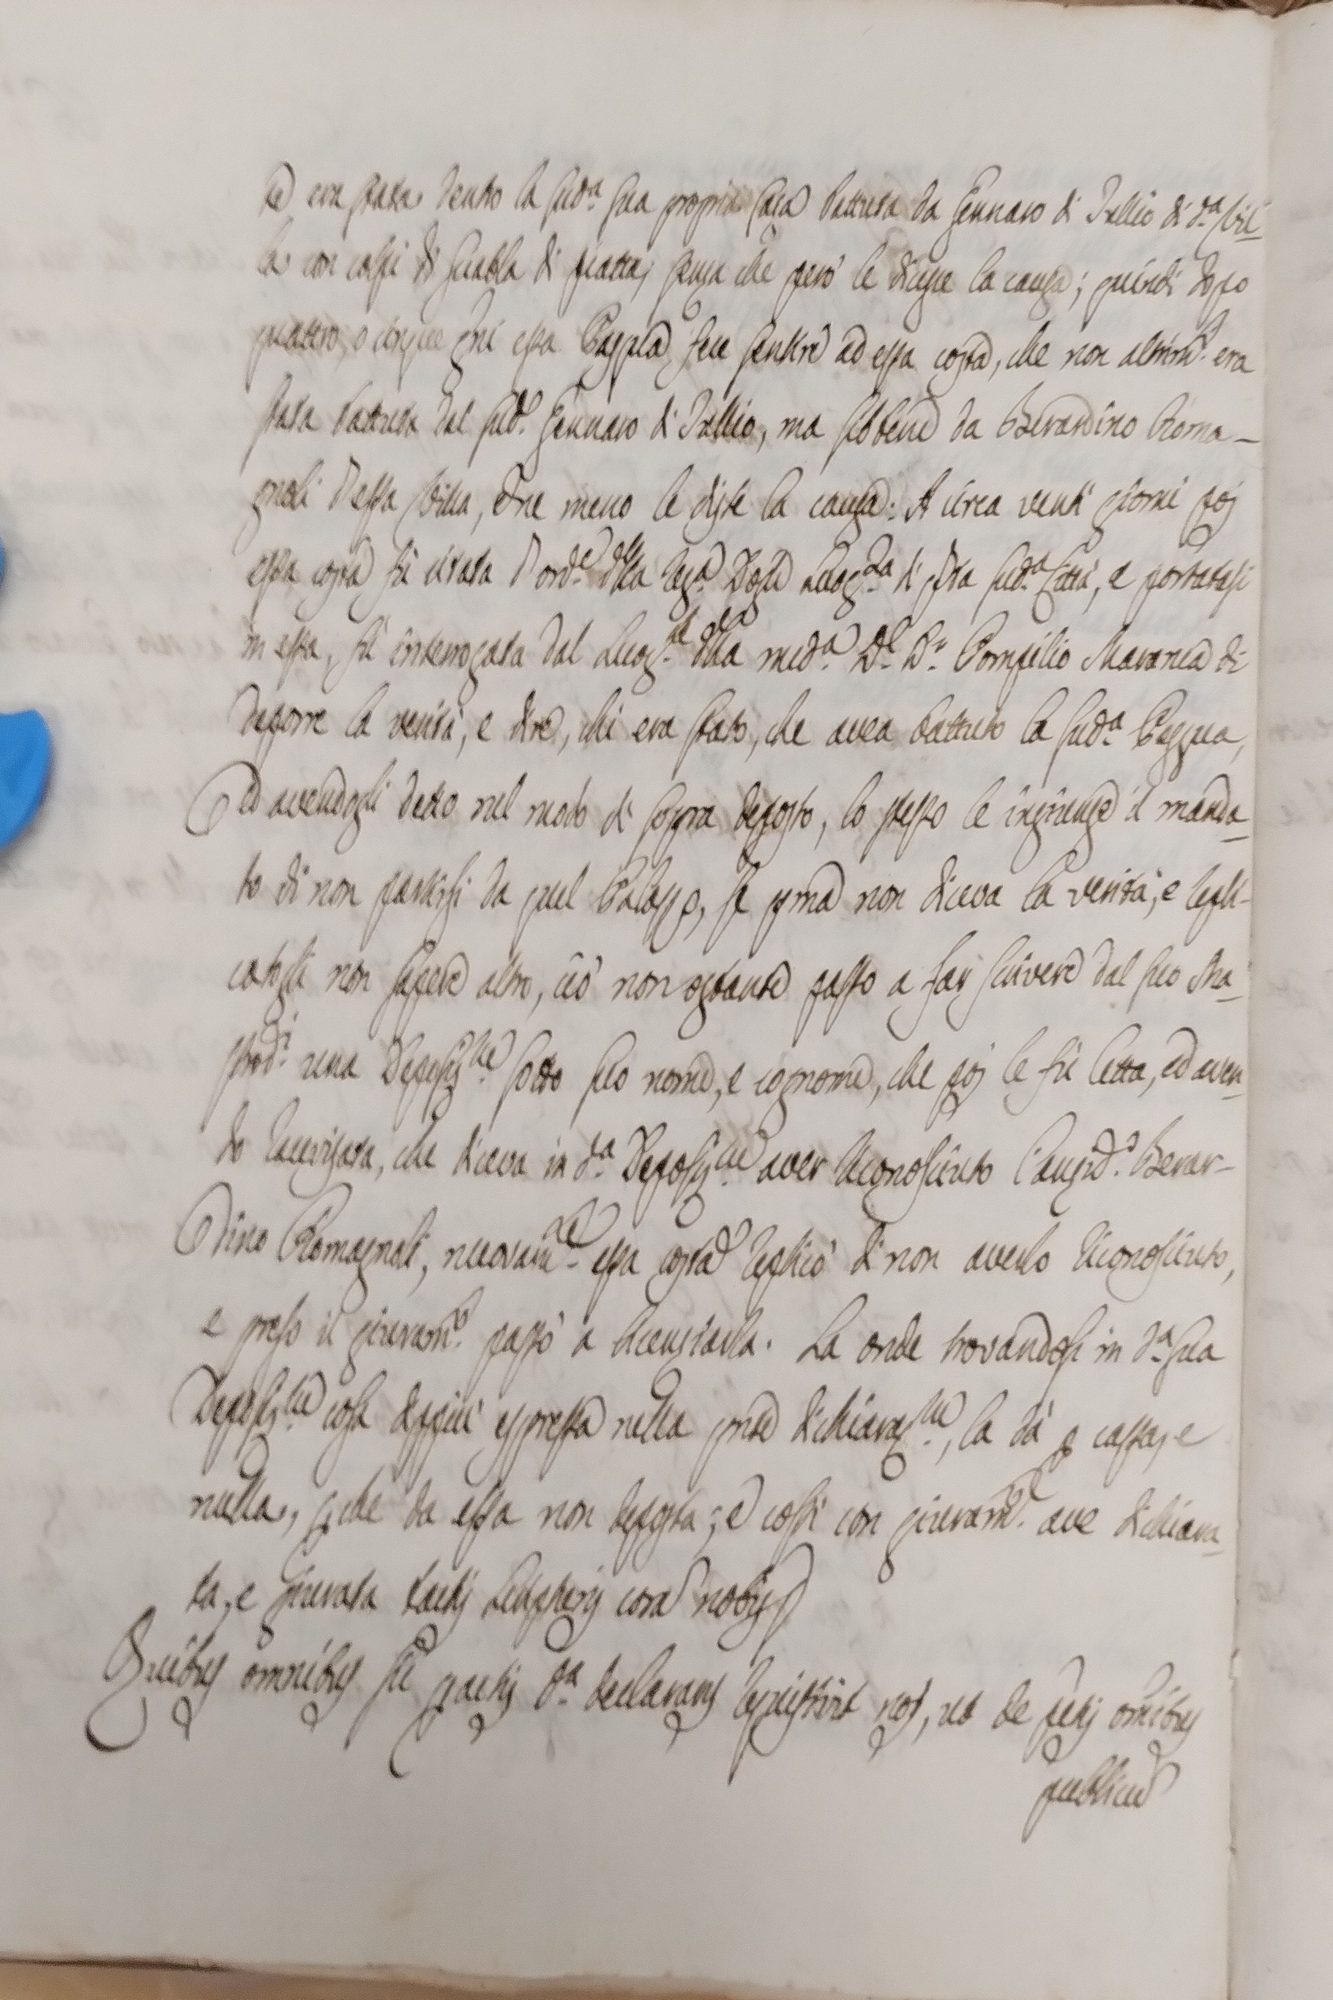 te era stata dentro la sud.a sua propria Casa battuta da Gennaro di Tullio di d.a Vil-
la con colpi di sciabla di piatta, senza che però le dicesse la causa; quindi dopo
quattro, o cinque gni essa Pasqua fece sentire ad essa costa, che non altrim.e era
stata battuta dal sud.o Gennaro di Tullio, ma sebbene da Berardino Roma-
gnoli d'essa Villa, e ne meno le disse la causa: A circa venti giorni poi
essa costa fù citata d'ord.e della Reg.a Luog.za di sud.a Città, e portatasi
in essa, fù interrogata dal Luog.te della med.a D.r D. Pompilio di
deporre la verità, e dire, chi era stato, che avea battuto la sud.a Pasqua,
Ed avendogli detto nel modo di sopra deposto, lo stesso le ingiunse il manda-
to di non partirsi da quel Palazzo, se pma non diceva la verità, e repli-
catogli non sapere altro, ciò non ostante passo a far scrivere dal suo Ma-
strod.i una Deposiz.ne sotto suo nome, e cognome, che poi le fù letta, ed aven-
do che diceva in d.a Deposiz.ne aver riconosciuto l'ansid.o Berar-
dino Romagnoli, nuovam.te essa costa replicò di non averlo riconosciuto,
e preso il giuram.o passò a licenziarla. La onde trovandosi in d.a sua
Deposiz.ne cosa deppiù espressa nella pnte dichiaraz.ne, la dà p cassa, e
nulla, pche da essa non deposta; e cossì con giuram.o ave dichiara-
ta, e giurata tactis scripturis cora nobis
Quibus omnibus sic d.a declarans requisivit nos, ut de omibus
publicu